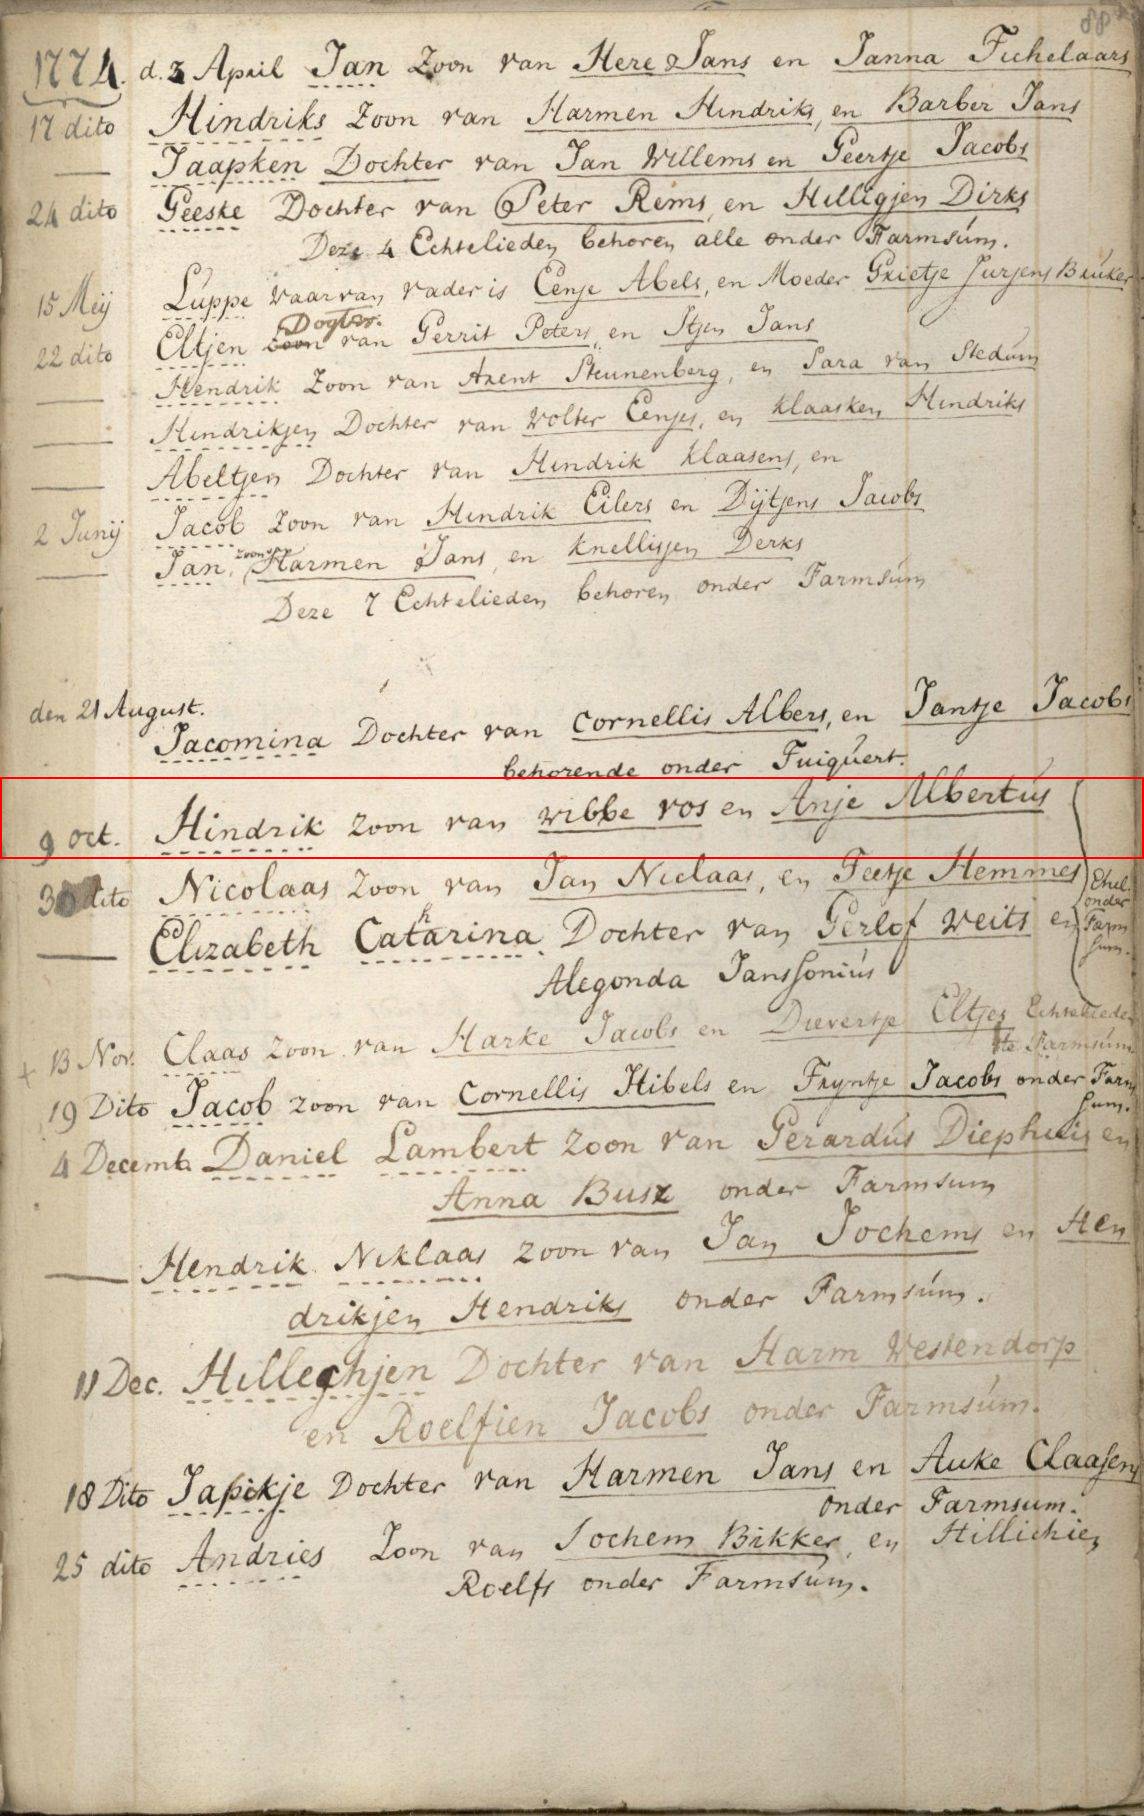 88
1774. d. 3 April Jan Zoon van Here Jans en Janna Tichelaars
17 dito Hindriks Zoon van Harmen Hindriks, en Barber Jans
Jaapken Dochter van Jan Willems en Geertje Jacobs
24 dito Geeske Dochter van Peter Rems, en Hilligjen Dirks
Deze 4 Echtelieden behoren alle onder Farmsúm.
15 Meij Lúppe waarvan vader is Eenje Abels, en Moeder Grietje Jurjens Brúker
Dogter.
22 dito Eltjen zoon van Gerrit Peters, en Itjen Jans
Hendrik Zoon van Arent Steunenberg, en Sara van Stedúm
Hindrikjen Dochter van Wolter Eenjes, en Klaasken Hindriks
Abeltjen Dochter van Hindrik Klaasens, en
2 Junij Jacob Zoon van Hindrik Eilers en Dijtjens Jacobs
Jan, zoon van Harmen Jans, en Knellisjen Derks
Deze 7 Echtelieden behoren onder Farmsúm
den 21 August.
Jacomina Dochter van Cornellis Albers, en Jantje Jacobs
behorende onder Tuiqúert.
9 oct. Hindrik Zoon van wibbe vos en Anje Albertús
30 dito Nicolaas Zoon van Jan Niclaas, en Feetje Hemmes Ehel.
onder
Elizabeth Catharina Dochter van Gerlof Weits en Farm
sum.
Alegonda Janssoniús
+ 13 Nov. Claas Zoon van Harke Jacobs en Dievertje Eltjes Echtelieden
te Farmsúm
19 Dito Jacob zoon van Cornellis Hibels en Tryntje Jacobs onder Farm
sum.
4 Decemb. Daniel Lambert Zoon van Gerardús Diephuis en
Anna Busz onder Farmsum
Hendrik Niklaas zoon van Jan Jochems en Hen
drikjen Hendriks onder Farmsúm.
11 Dec. Hilleghjen Dochter van Harm Westendorp
en Roelfien Jacobs onder Farmsúm.
18 Dito Japikje Dochter van Harmen Jans en Auke Claasens
onder Farmsum.
25 dito Andries Zoon van Jochem Bikker, en Hillichien
Roelfs onder Farmsúm.